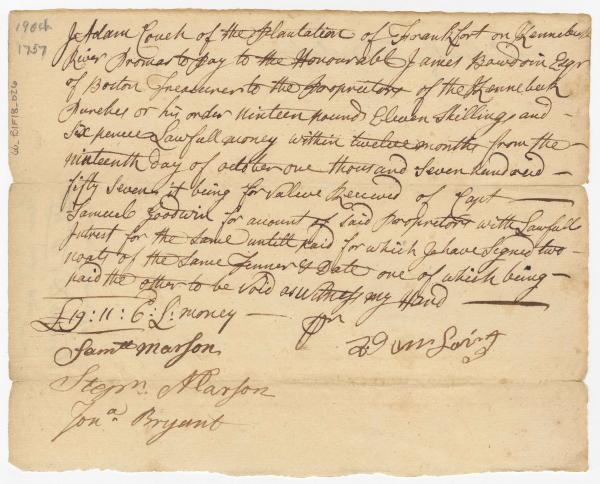 19 Oct
1757
I Adam Couch of the Plantation of Frankfort on Kennebeck
River Promas to Pay to the Honourabl James Bowdoin Esqr
of Boston Treasurer to the Propriters of the Kennebeck
Purches or his order nineteen pound Eleven Shillings and
Six pence Lawfull money within twelve months from the
nineteenth day of october one thousand Seven hundred
fifty Seven it being for Valeue Received of Capt
Samuel Goodwin for account of said Propriters with Lawfull
Intrest for the Same untill paid for which I have Signed two
noats of the Same Tenner & Date one of which being
paid the other to be Void as witness my Hand
£19:11:6:L: money
Samll Marson
Adam
Stephn Marson
Jona Bryant